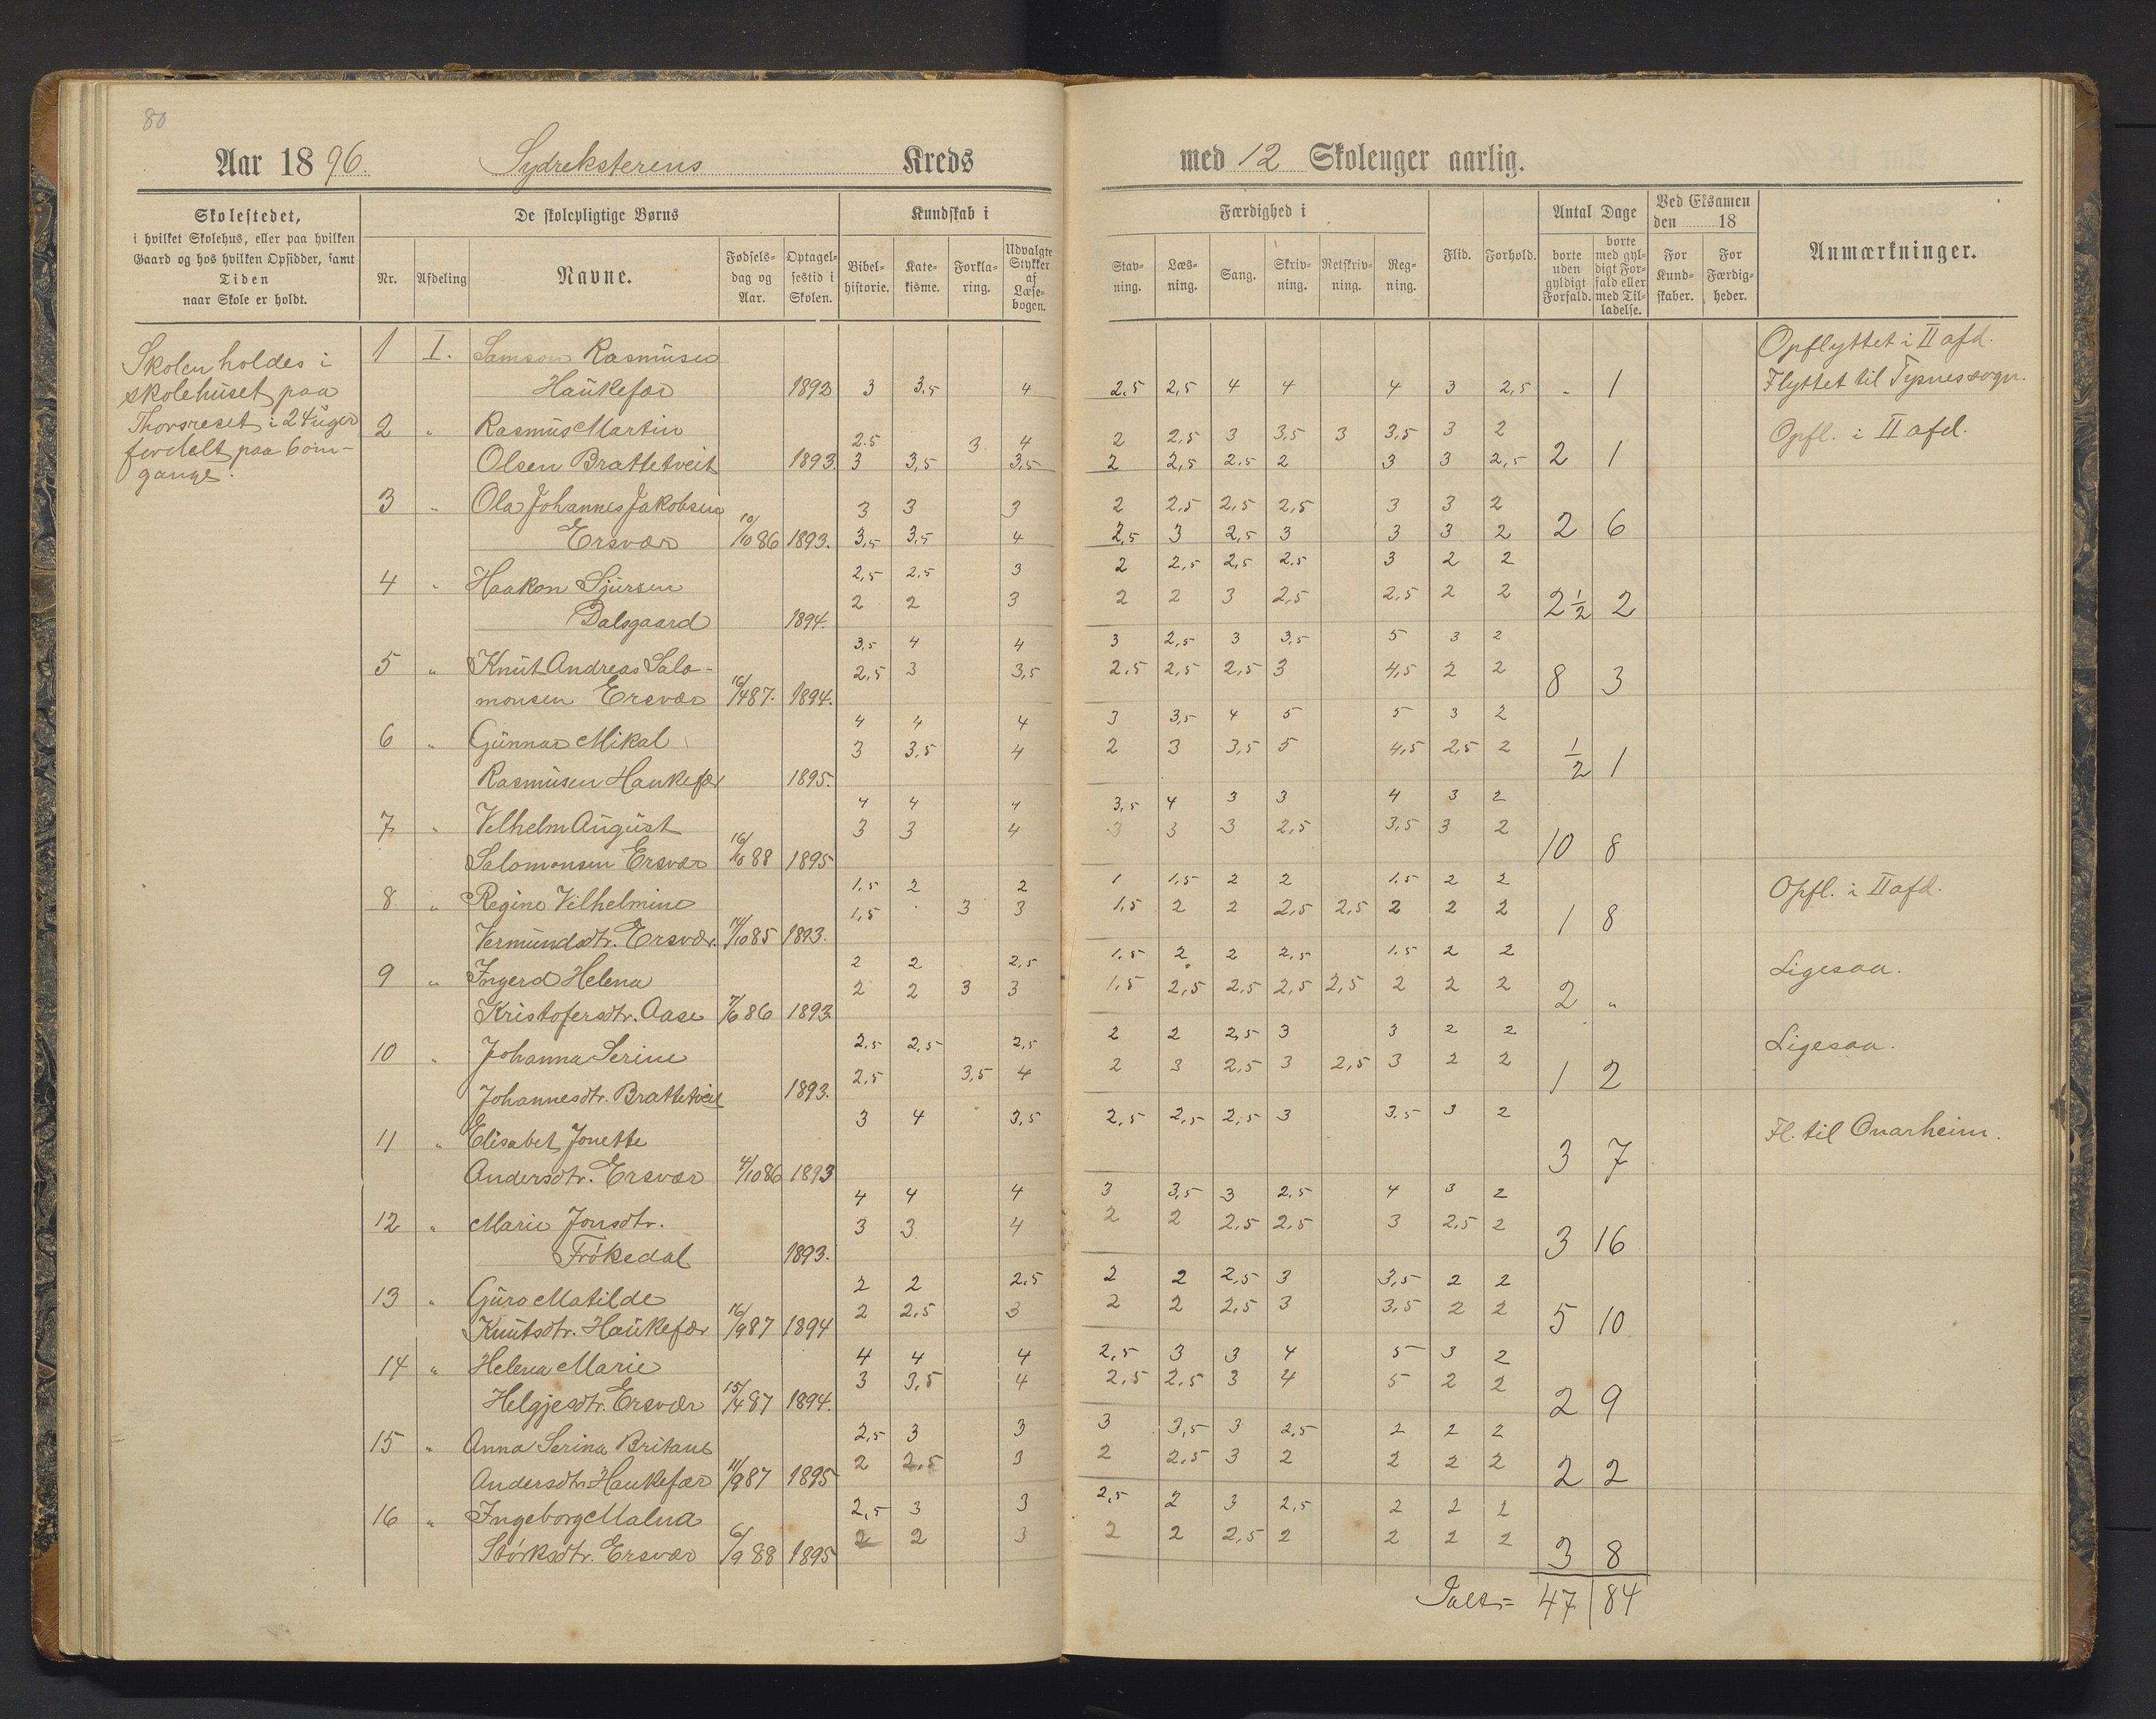 80
Aar 1896. Sydreksterens Kreds
med 12 Skoleuger aarlig.
Skolestedet,
i hvilket Skolehus, eller paa hvilken
Gaard og hos hvilken Opsidder, samt
Tiden
naar Skole er holdt.
De skolepligtige Børns
Nr. Afdeling Navne. Fødselsdag og Aar. Optagelsestid i Skolen.
Kundskab i
Bibelhistorie. Katekisme. Forklaring. Udvalgte Stykker af Læsebogen.
Færdighed i
Stavning. Læsning. Sang. Skrivning. Retskrivning. Regning.
Flid. Forhold.
Antal Dage
borte uden gyldigt Forfald. borte med gyldigt Forfald eller med Tilladelse.
Ved Eksamen
den 18
For Kundskaber. For Færdigheder.
Anmærkninger.
Skolen holdes i
skolehuset paa
Thorsreset i 24 uger
fordelt paa 6 om-
gange.
1 I. Samson Rasmusen Opflyttet i II afd.
Haukefær 1893 3 3,5 4 2,5 2,5 4 4 4 3 2,5 - 1 Flyttet til Tysnes sogn.
2 " Rasmus Martin 2.5 3 4 2 2,5 3 3,5 3 3,5 3 2 Opfl. i II afd.
Olsen Brattetveit 1893. 3 3,5 3,5 2 2,5 2.5 2 3 3 2,5 2 1
3 " Ola Johannes Jakobsen 3 3 3 2 2,5 2,5 2,5 3 3 2
Ersvær 10/10 86 1893. 3,5 3,5 4 2,5 3 2,5 3 3 3 2 2 6
4 " Haakon Sjursen 2,5 2.5 3 2 2,5 2,5 2.5 3 2 2
Dalsgaard 1894. 2 2 3 2 2 3 2,5 2,5 2 2 2½ 2
5 " Knut Andreas Salo- 3,5 4 4 3 2,5 3 3,5 5 3 2
monsen Ersvær 16/4 87. 1894. 2,5 3 3,5 2.5 2,5 2,5 3 4,5 2 2 8 3
6 " Gunnar Mikal 4 4 4 3 3,5 4 5 5 3 2
Rasmusen Haukefær 1895. 3 3,5 4 2 3 3,5 5 4,5 2,5 2 ½ 1
7 " Velhelm August 4 4 4 3,5 4 3 3 4 3 2
Salomonsen Ersvær 16/10 88 1895 3 3 4 3 3 3 2,5 3,5 3 2 10 8
8 " Regine Vilhelmine 1,5 2 2 1 1,5 2 2 1.5 2 2 Opfl. i II afd.
Vermundsdtr. Ersvær. 14/10 85 1893. 1,5 3 3 1,5 2 2 2,5 2,5 2 2 2 1 8
9 " Ingerd Helena 2 2 2,5 1,5 2 2 2,5 1.5 2 2 Ligesaa.
Kristofersdtr. Aase 7/6 86 1893. 2 2 3 3 1,5 2,5 2,5 2,5 2,5 2 2 2 2 "
10 " Johanna Serine 2.5 2,5 2,5 2 2 2,5 3 3 2 2 Ligesaa.
Johannesdtr. Brattetveit 1893. 2,5 3,5 4 2 3 2,5 3 2,5 3 2 2 1 2
11 " Elisabet Jonette 3 4 3,5 2,5 2,5 2,5 3 3.5 3 2 Fl. til Onarheim.
Andersdtr. Ersvær 4/10 86 1893 3 7
12 " Marie Jonsdtr. 4 4 4 3 3,5 3 2,5 4 3 2
Frøkedal 1893. 3 3 4 2 2 2,5 2,5 3 2,5 2 3 16
13 " Guro Matilde 2 2 2.5 2 2 2,5 3 3,5 2 2
Knutsdtr. Haukefær 16/9 87 1894 2 2,5 3 2 2 2,5 3 3,5 2 2 5 10
14 " Helena Marie 4 4 4 2,5 3 3 4 5 3 2
Helgjesdtr. Ersvær 15/4 87 1894. 3 3,5 4 2,5 2,5 3 4 5 2 2 2 9
15 " Anna Serina Britane 2,5 3 3 3 3,5 3 2,5 2 2 2
Andersdtr. Haukefær 11/9 87 1895 2 2,5 3 2 2,5 3 2 2 2 2 2 2
16 " Ingeborg Malna 2,5 3 3 2,5 2 3 2,5 2 2 2
Størksdtr. Ersvær 6/9 88 1895 2 2 3 2 2 2,5 2 2 2 2 3 8
Ialt = 47 84